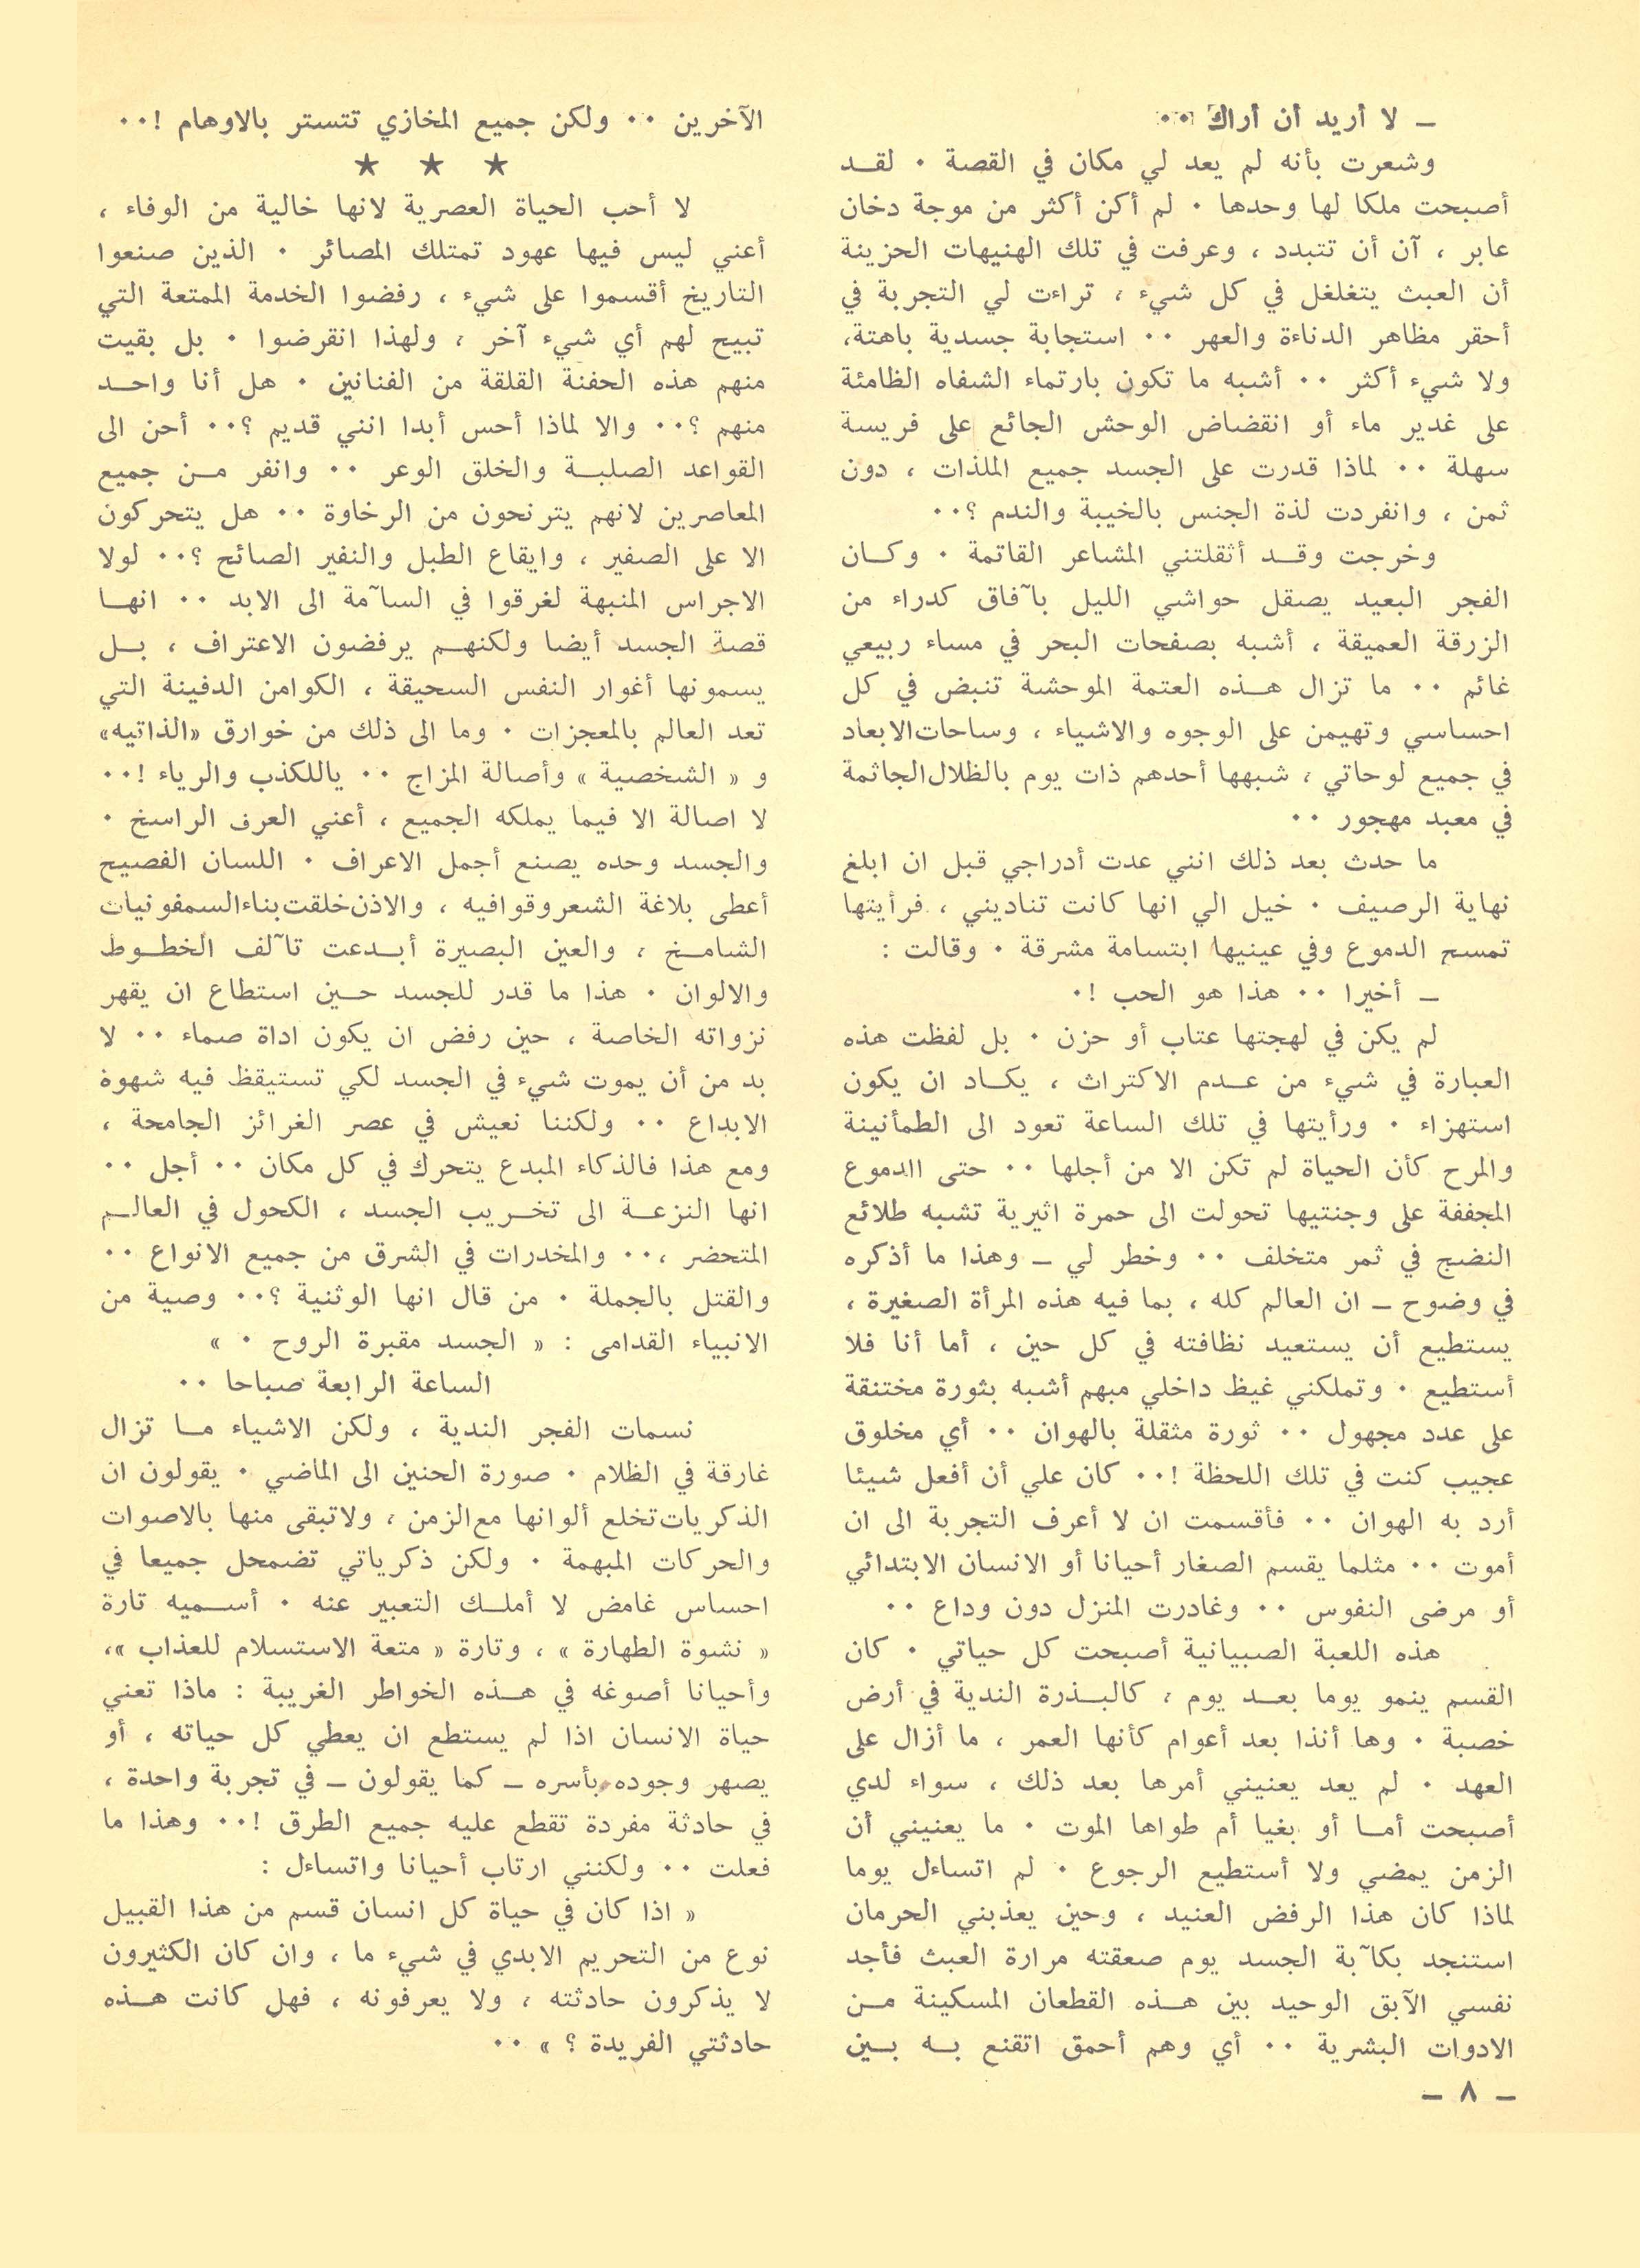 ـ لا أريد أن أراك ٠٠
وشعرت بأنه لم يعد لي مكان في القصة ٠ لقـد
أصبحت ملكا لها وحدها ٠ لم أكن أكثر من موجة دخان
عابر ، آن أن تتبدد ، وعرفت في تلك الهنيهات الحزينة
أن العبث يتغلغل في كل شيء ، تراءت لي التجربة في
أحقر مظاهر الدناءة والعهر ٠٠ استجابة جسدية باهتة،
ولا شيء أكثر ٠٠ أشبه ما تكون بارتماء الشفاه الظامئة
على غدير ماء أو انقضاض الوحش الجائع على فريسة
سهلة ٠٠ لماذا قدرت على الجسد جميع الملذات ، دون
ثمن ، وانفردت لذة الجنس بالخيبة والندم ؟٠٠
وخرجت وقـد أثقلتني المشاعر القاتمة ٠ وكـان
الفجر البعيد يصقل حواشي الليل بآفاق كدراء من
الزرقة العميقة ، أشبه بصفحات البحر في مساء ربيعي
غائم ٠٠ ما تزال هـذه العتمة الموحشة تنبض في كل
احساسي وتهيمن على الوجوه والاشياء ، وساحات الابعاد
في جميع لوحاتي ، شبهها أحدهم ذات يوم بالظلال الجاثمة
في معبد مهجور ٠٠
ما حدث بعد ذلك انني عدت أدراجي قبل ان ابلغ
نهاية الرصيف ٠ خيل الي انها كانت تناديني ، فرأيتها
تمسح الدموع وفي عينيها ابتسامة مشرقة ٠ وقالت :
ـ أخيرا ٠٠ هذا هو الحب !٠
لم يكن في لهجتها عتاب أو حزن ٠ بل لفظت هذه
العبارة في شيء من عـدم الاكتراث ، يكـاد ان يكون
استهزاء ٠ ورأيتها في تلك الساعة تعود الى الطمأنينة
والمرح كأن الحياة لم تكن الا من أجلها ٠٠ حتى الدموع
المجففة على وجنتيها تحولت الى حمرة اثيرية تشبه طلائع
النضج في ثمر متخلف ٠٠ وخطر لي ـ وهذا ما أذكره
في وضوح ـ ان العالم كله ، بما فيه هذه المرأة الصغيرة ،
يستطيع أن يستعيد نظافته في كل حين ، أما أنا فلا
أستطيع ٠ وتملكني غيظ داخلي مبهم أشبه بثورة مختنقة
على عدد مجهول ٠٠ ثورة مثقلة بالهوان ٠٠ أي مخلوق
عجيب كنت في تلك اللحظة !٠٠ كان علي أن أفعل شيئا
أرد به الهوان ٠٠ فأقسمت ان لا أعرف التجربة الى ان
أموت ٠٠ مثلما يقسم الصغار أحيانا أو الانسان الابتدائي
أو مرضى النفوس ٠٠ وغادرت المنزل دون وداع ٠٠
هذه اللعبة الصبيانية أصبحت كل حياتي ٠ كان
القسم ينمو يوما بعـد يوم ، كالبـذرة الندية في أرض
خصبة ٠ وها أنذا بعد أعوام كأنها العمر ، ما أزال على
العهد ٠ لم يعد يعنيني أمرها بعد ذلك ، سواء لدي
أصبحت أمـا أو بغيا أم طواها الموت ٠ ما يعنيني أن
الزمن يمضي ولا أستطيع الرجوع ٠ لم اتساءل يوما
لماذا كان هذا الرفض العنيد ، وحين يعذبني الحرمان
استنجد بكآبة الجسد يوم صعقته مرارة العبث فأجد
نفسي الآبق الوحيد بين هـذه القطعان المسكينة مـن
الادوات البشرية ٠٠ أي وهم أحمق اتقنع بـه بـين
الآخرين ٠٠ ولكن جميع المخازي تتستر بالاوهام !٠٠
★ ★ ★
لا أحب الحياة العصرية لانها خالية من الوفاء ،
أعني ليس فيها عهود تمتلك المصائر ٠ الذين صنعوا
التاريخ أقسموا على شيء ، رفضوا الخدمة الممتعة التي
تبيح لهم أي شيء آخر ، ولهذا انقرضوا ٠ بل بقيت
منهم هذه الحفنة القلقة من الفنانين ٠ هل أنا واحـد
منهم ؟٠٠ والا لماذا أحس أبدا انني قديم ؟٠٠ أحن الى
القواعد الصلبـة والخلق الوعر ٠٠ وانفر مـن جميع
المعاصرين لانهم يترنحون من الرخاوة ٠٠ هل يتحركون
الا على الصفير ، وايقاع الطبل والنفير الصائح ؟٠٠ لولا
الاجراس المنبهة لغرقوا في السآمة الى الابد ٠٠ انهـا
قصة الجسد أيضا ولكنهـم يرفضون الاعتراف ، بـل
يسمونها أغوار النفس السحيقة ، الكوامن الدفينة التي
تعد العالم بالمعجزات ٠ وما الى ذلك من خوارق «الذاتيه»
و « الشخصية » وأصالة المزاج ٠٠ ياللكذب والرياء !٠٠
لا اصالة الا فيما يملكه الجميع ، أعني العرف الراسخ ٠
والجسد وحده يصنع أجمل الاعراف ٠ اللسان الفصيح
أعطى بلاغة الشعر وقوافيه ، والاذن خلقت بناء السمفونيات
الشامـخ ، والعين البصيرة أبـدعت تآلف الخطـوط
والالوان ٠ هذا ما قدر للجسد حـين استطاع ان يقهر
نزواته الخاصة ، حين رفض ان يكون اداة صماء ٠٠ لا
بد من أن يموت شيء في الجسد لكي تستيقظ فيه شهوة
الابداع ٠٠ ولكننا نعيش في عصر الغرائز الجامحة ،
ومع هذا فالذكاء المبدع يتحرك في كل مكان ٠٠ أجل ٠٠
انها النزعـة الى تخـريب الجسد ، الكحول في العالـم
المتحضر ،٠٠ والمخدرات في الشرق من جميع الانواع ٠٠
والقتل بالجملة ٠ من قال انها الوثنية ؟٠٠ وصية من
الانبياء القدامى : « الجسد مقبرة الروح ٠ »
الساعة الرابعة صباحا ٠٠
نسمات الفجر الندية ، ولكن الاشياء مـا تزال
غارقة في الظلام ٠ صورة الحنين الى الماضي ٠ يقولون ان
الذكريات تخلع ألوانها مع الزمن ، ولا تبقى منها بالاصوات
والحركات المبهمة ٠ ولكن ذكرياتي تضمحل جميعا في
احساس غامض لا أملـك التعبير عنه ٠ أسـميه تارة
« نشوة الطهارة » ، وتارة « متعة الاستسلام للعذاب »،
وأحيانا أصوغه في هـذه الخواطر الغريبة : ماذا تعني
حياة الانسان اذا لم يستطع ان يعطي كل حياته ، أو
يصهر وجوده بأسره ـ كما يقولون ـ في تجربة واحدة ،
في حادثة مفردة تقطع عليه جميع الطرق !٠٠ وهذا ما
فعلت ٠٠ ولكنني ارتاب أحيانا واتساءل :
« اذا كان في حياة كل انسان قسم من هذا القبيل
نوع من التحريم الابدي في شيء ما ، وان كان الكثيرون
لا يذكرون حادثته ، ولا يعرفونه ، فهل كانت هـذه
حادثتي الفريدة ؟ » ٠٠
ـ ٨ ـ